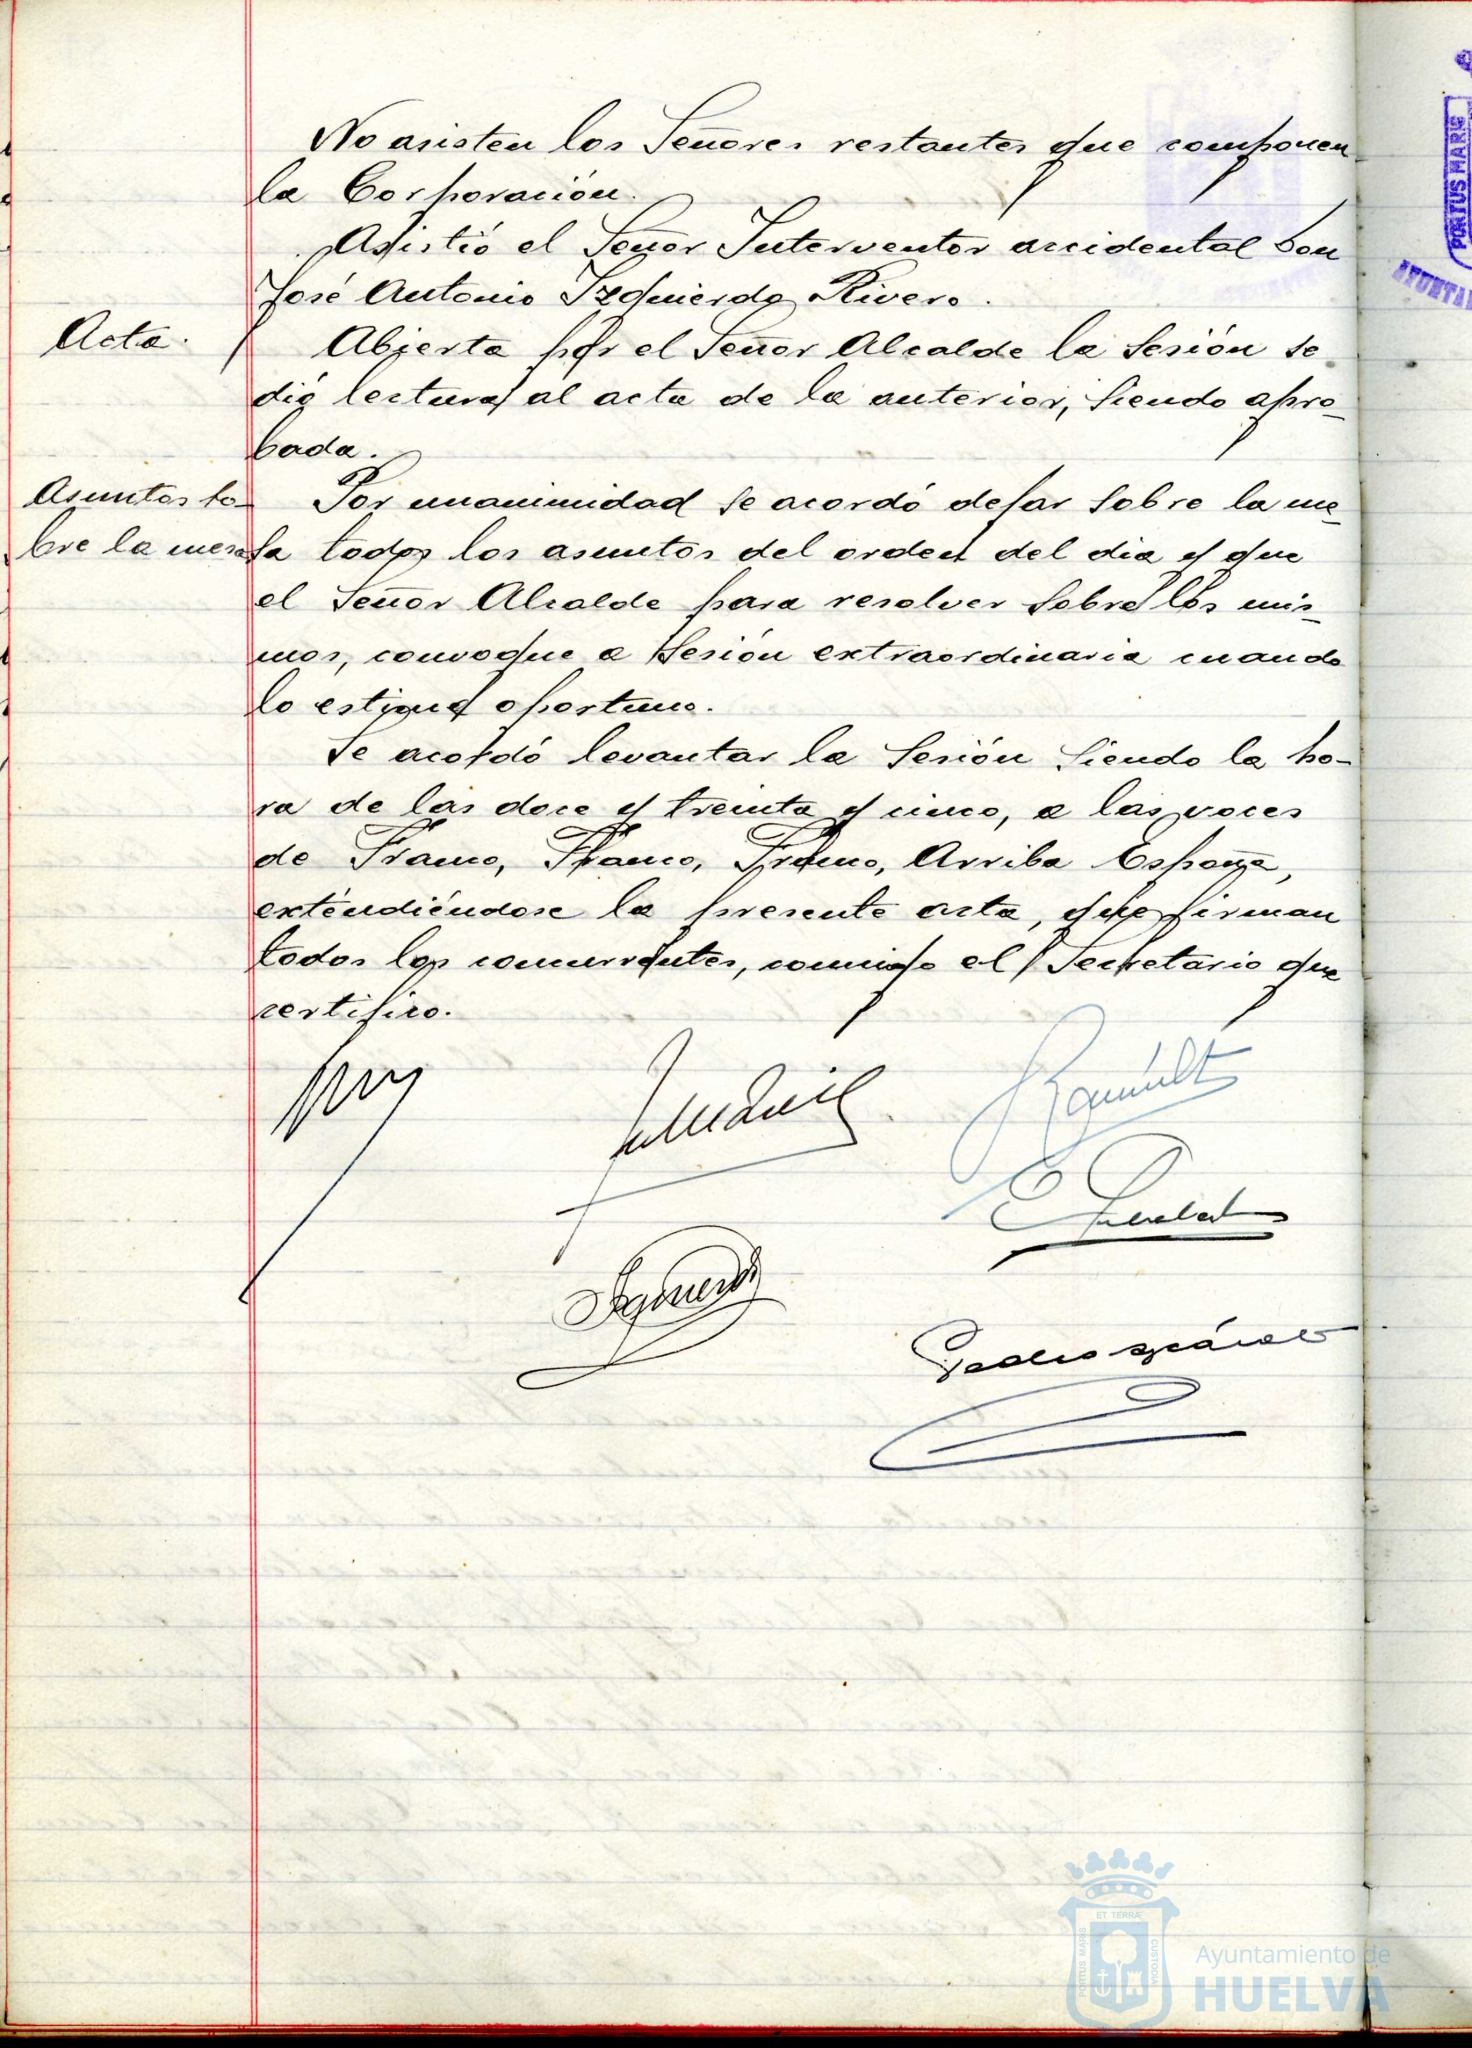 No asisten los Señores restantes que componen
la Corporación.
Asistió el Señor Interventor accidental Don
José Antonio Izquierdo Rivero.
Acta.
Abierta por el Señor Alcalde la Sesión se
dió lectura al acta de la anterior, siendo apro-
bada.
Asuntos so-
bre la mesa
Por unanimidad se acordó dejar sobre la me-
sa todos los asuntos del orden del dia y que
el Señor Alcalde para resolver sobre los mis-
mos, convoque a Sesión extraordinaria cuando
lo estime oportuno.
Se acordó levantar la Sesión siendo la ho-
ra de las doce y treinta y cinco, a las voces
de Franco, Franco, Franco, Arriba España,
extendiéndose la presente acta, que firman
todos los concurrentes, conmigo el Secretario que
certifico.
Pedro
PORTUS MARIS
ET TERRÆ
PORTUS MARIS
CUSTODIA
Ayuntamiento de
HUELVA